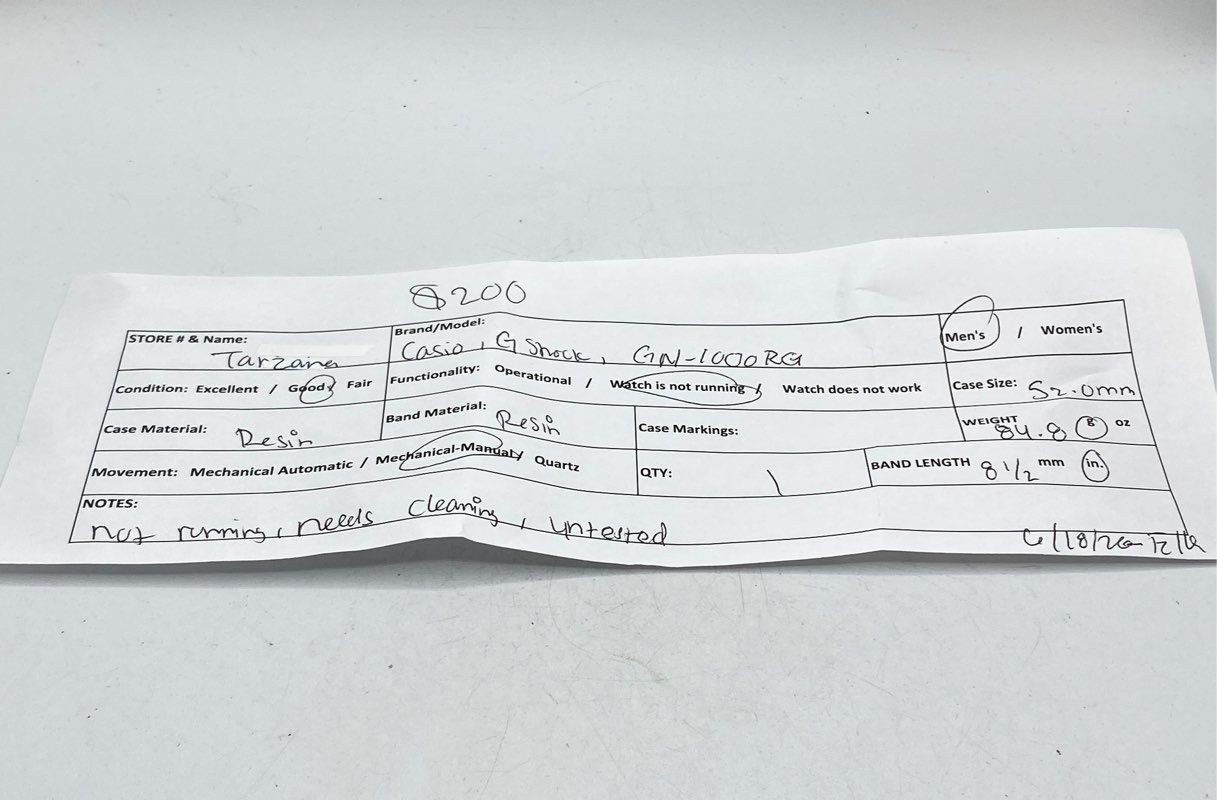 $200
STORE # & Name: Tarzana
Brand/Model: Casio, G Shock, GN-1000RG
Men's / Women's
Condition: Excellent / Good / Fair
Functionality: Operational / Watch is not running / Watch does not work
Case Size: 52.0mm
Case Material: Resin
Band Material: Resin
Case Markings:
WEIGHT 84.8 g oz
Movement: Mechanical Automatic / Mechanical-Manual / Quartz
QTY: 1
BAND LENGTH 8 1/2 mm in.
NOTES:
not running, needs cleaning, untested